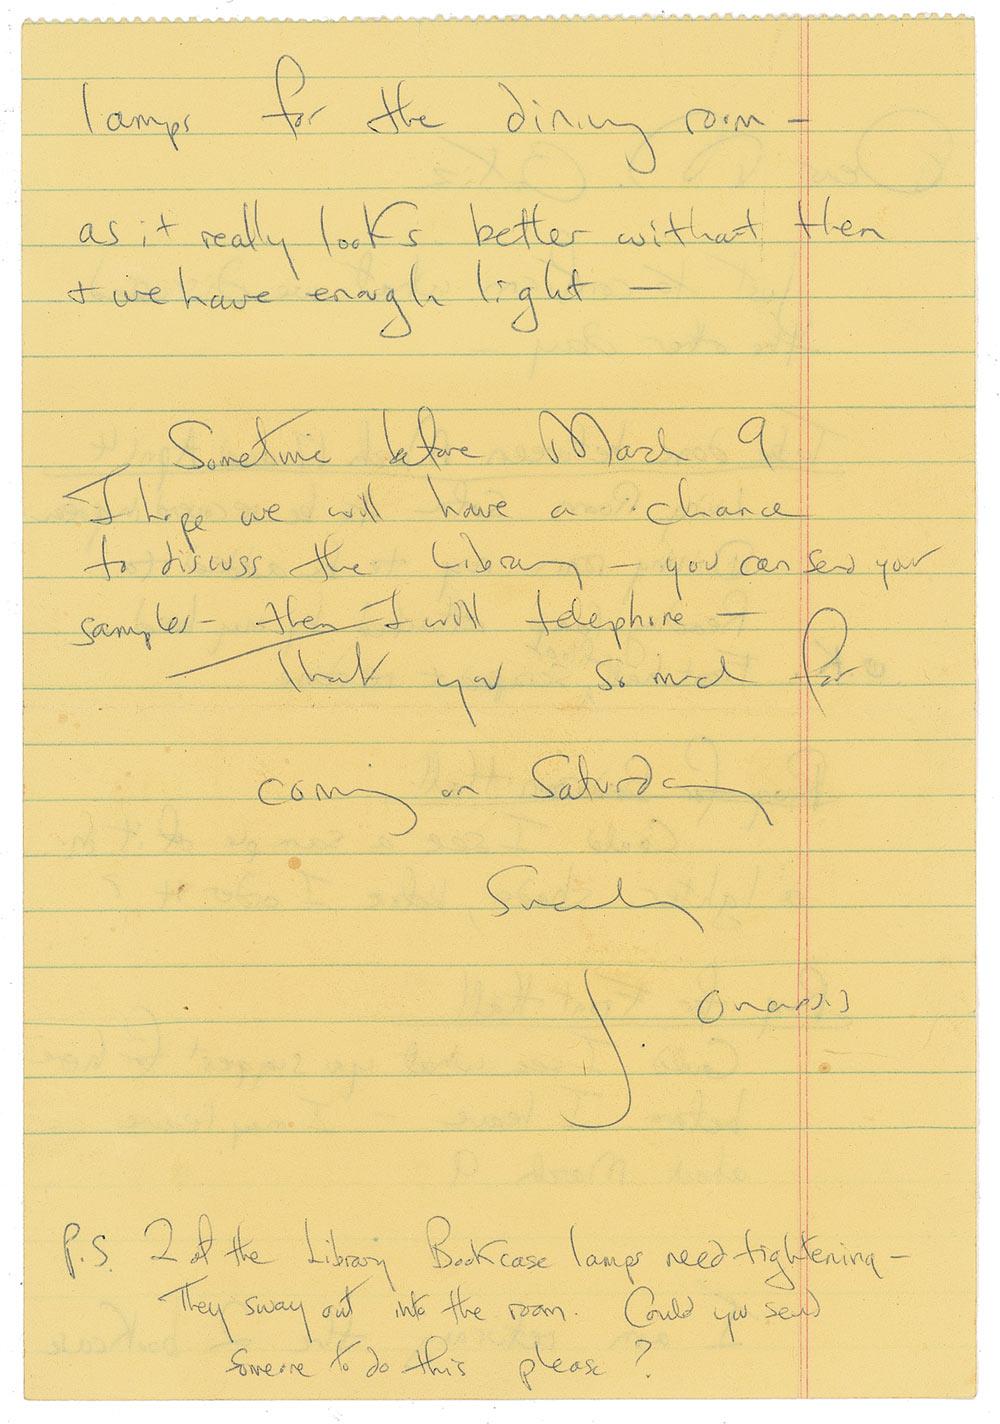 lamps for the dining room –
as it really looks better without them
+ we have enough light –
Sometime before March 9
I hope we will have a chance
to discuss the Library – you can send your
samples – then I will telephone –
Thank you so much for
coming on Saturday
Sincerely
J. Onassis
P.S. 2 of the Library Bookcase lamps need tightening –
They sway out into the room. Could you send
someone to do this please?